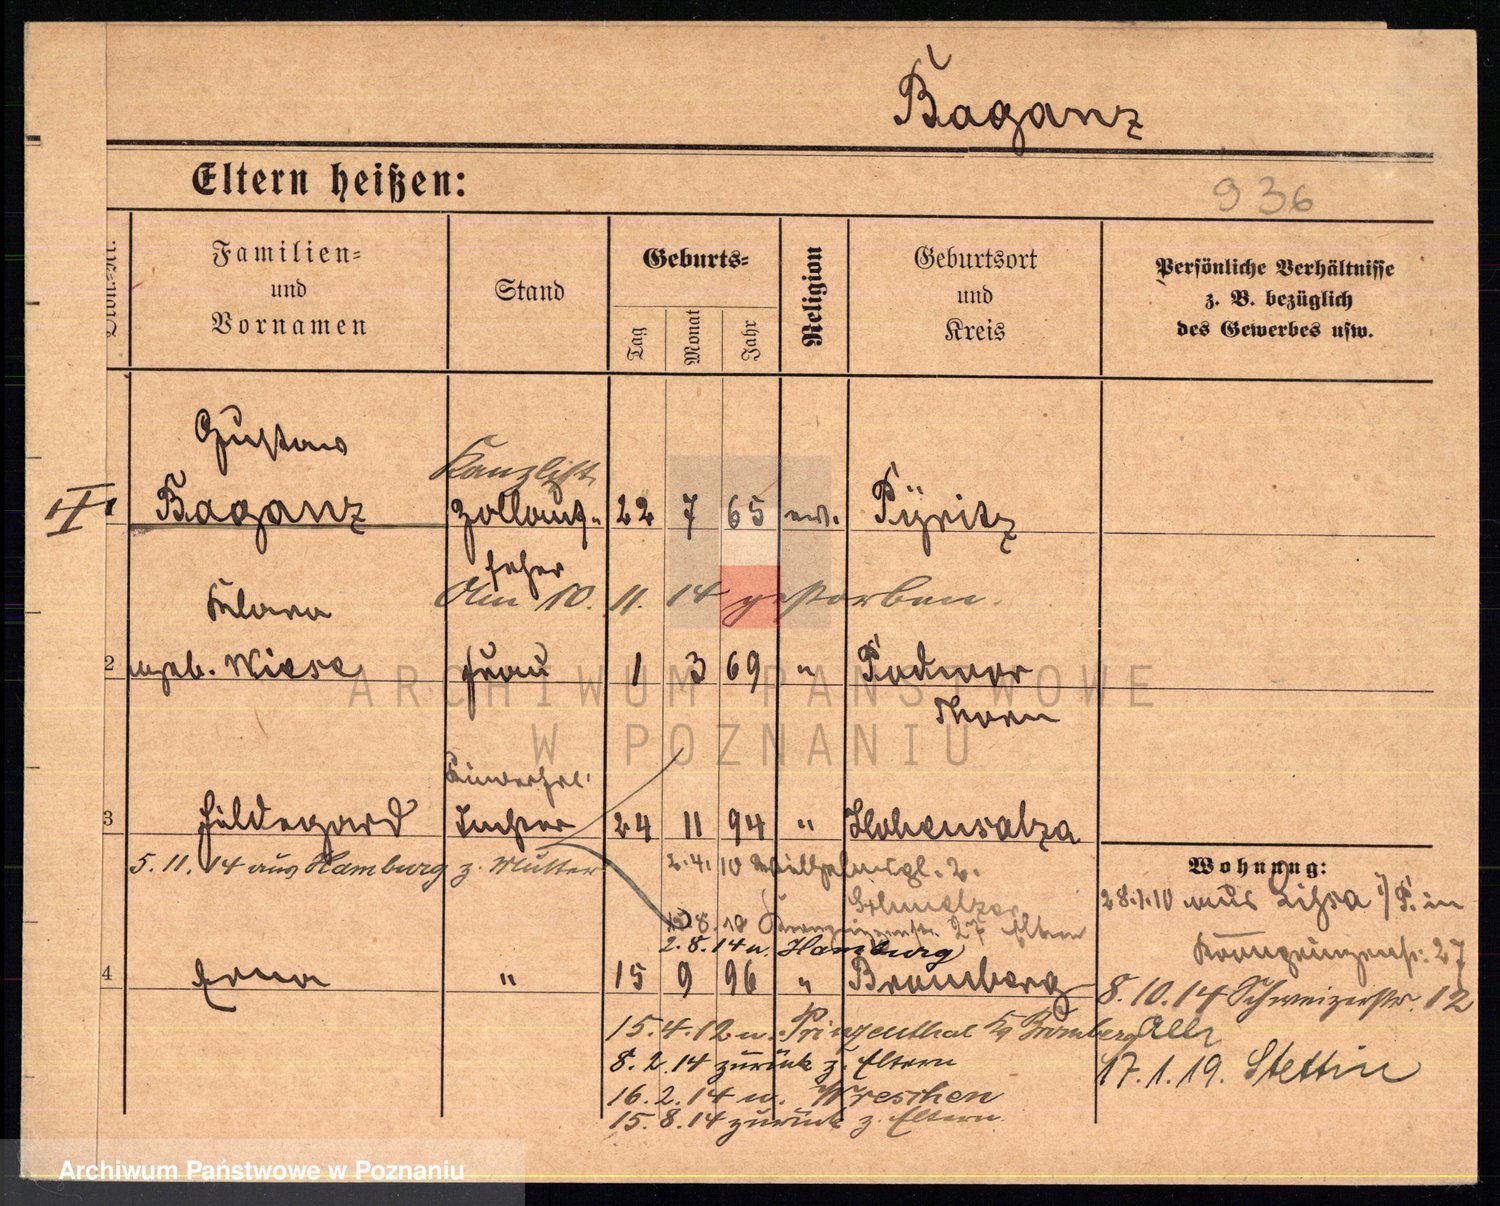 Baganz
Eltern heißen:
936
Familien-
und
Vornamen
Stand
Geburts-
Tag
Monat
Jahr
Religion
Geburtsort
und
Kreis
Persönliche Verhältnisse
z. B. bezüglich
des Gewerbes usw.
Gustav
Kanzlist
Baganz
Zollauf-
22 7 65 ev. Pyritz
seher
Am 10. 11. 14 gestorben.
Klara
2 geb. Wiese Frau 1 3 69 " Podwor
Thorn
3 Hildegard Tochter 24 11 94 " Hohensalza
5. 11. 14 aus Hamburg z. Mutter
2. 4. 10 Wilhelmspl. 2.
Kronprinzenstr. 27 Eltern
2. 8. 14 n. Hamburg
4 Erna " 15 9 96 " Bromberg
15. 4. 12 n. Prinzenthal Bromberg
8. 2. 14 zurück z. Eltern
16. 2. 14 n. Wreschen
15. 8. 14 zurück z. Eltern
Wohnung:
28.1.10 aus Lissa i/P. in
Kronprinzenstr. 27
8. 10. 14 Schweizerstr. 12
17. 1. 19. Stettin
ARCHIWUM PAŃSTWOWE
W POZNANIU
Archiwum Państwowe w Poznaniu